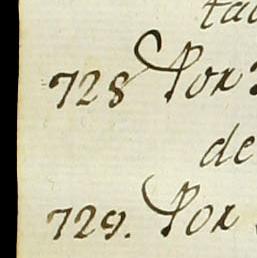 728 Por
de
729. Por